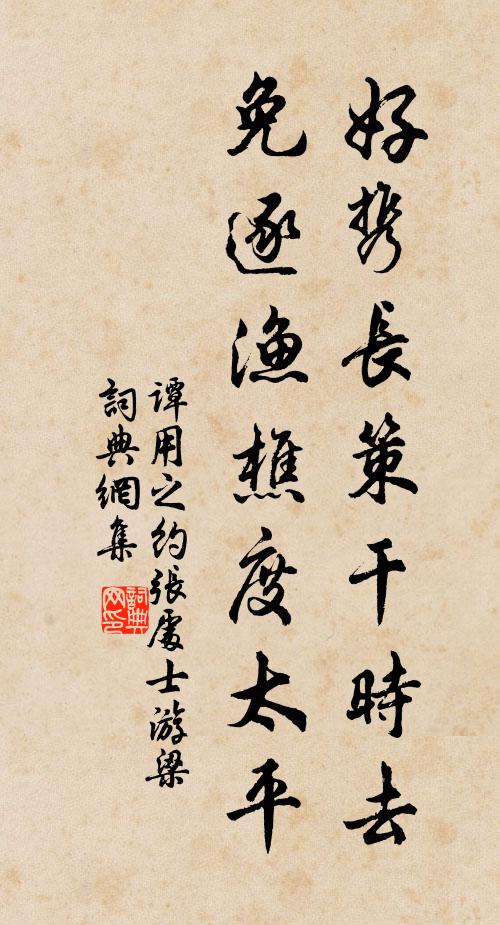 好携長策干時去
免逐漁樵度太平
譚用之約張處士游梁
詞典網集
詞典网印